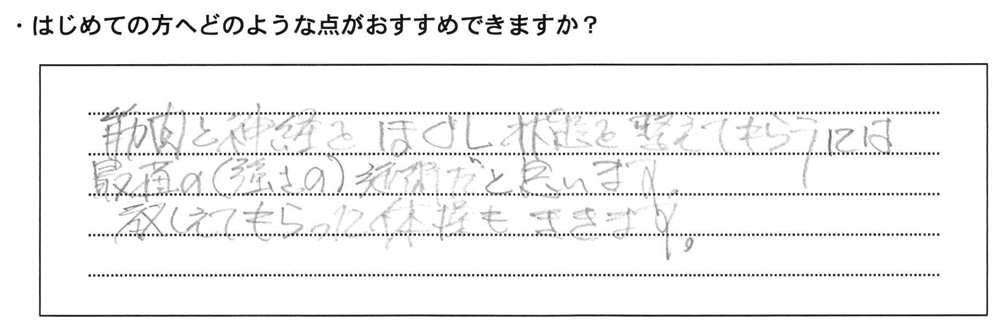 ・はじめての方へどのような点がおすすめできますか？
筋肉と神経をほぐし状態を整えてもらうには
最適の(強さの)施術だと思います。
教えてもらった体操もききます。